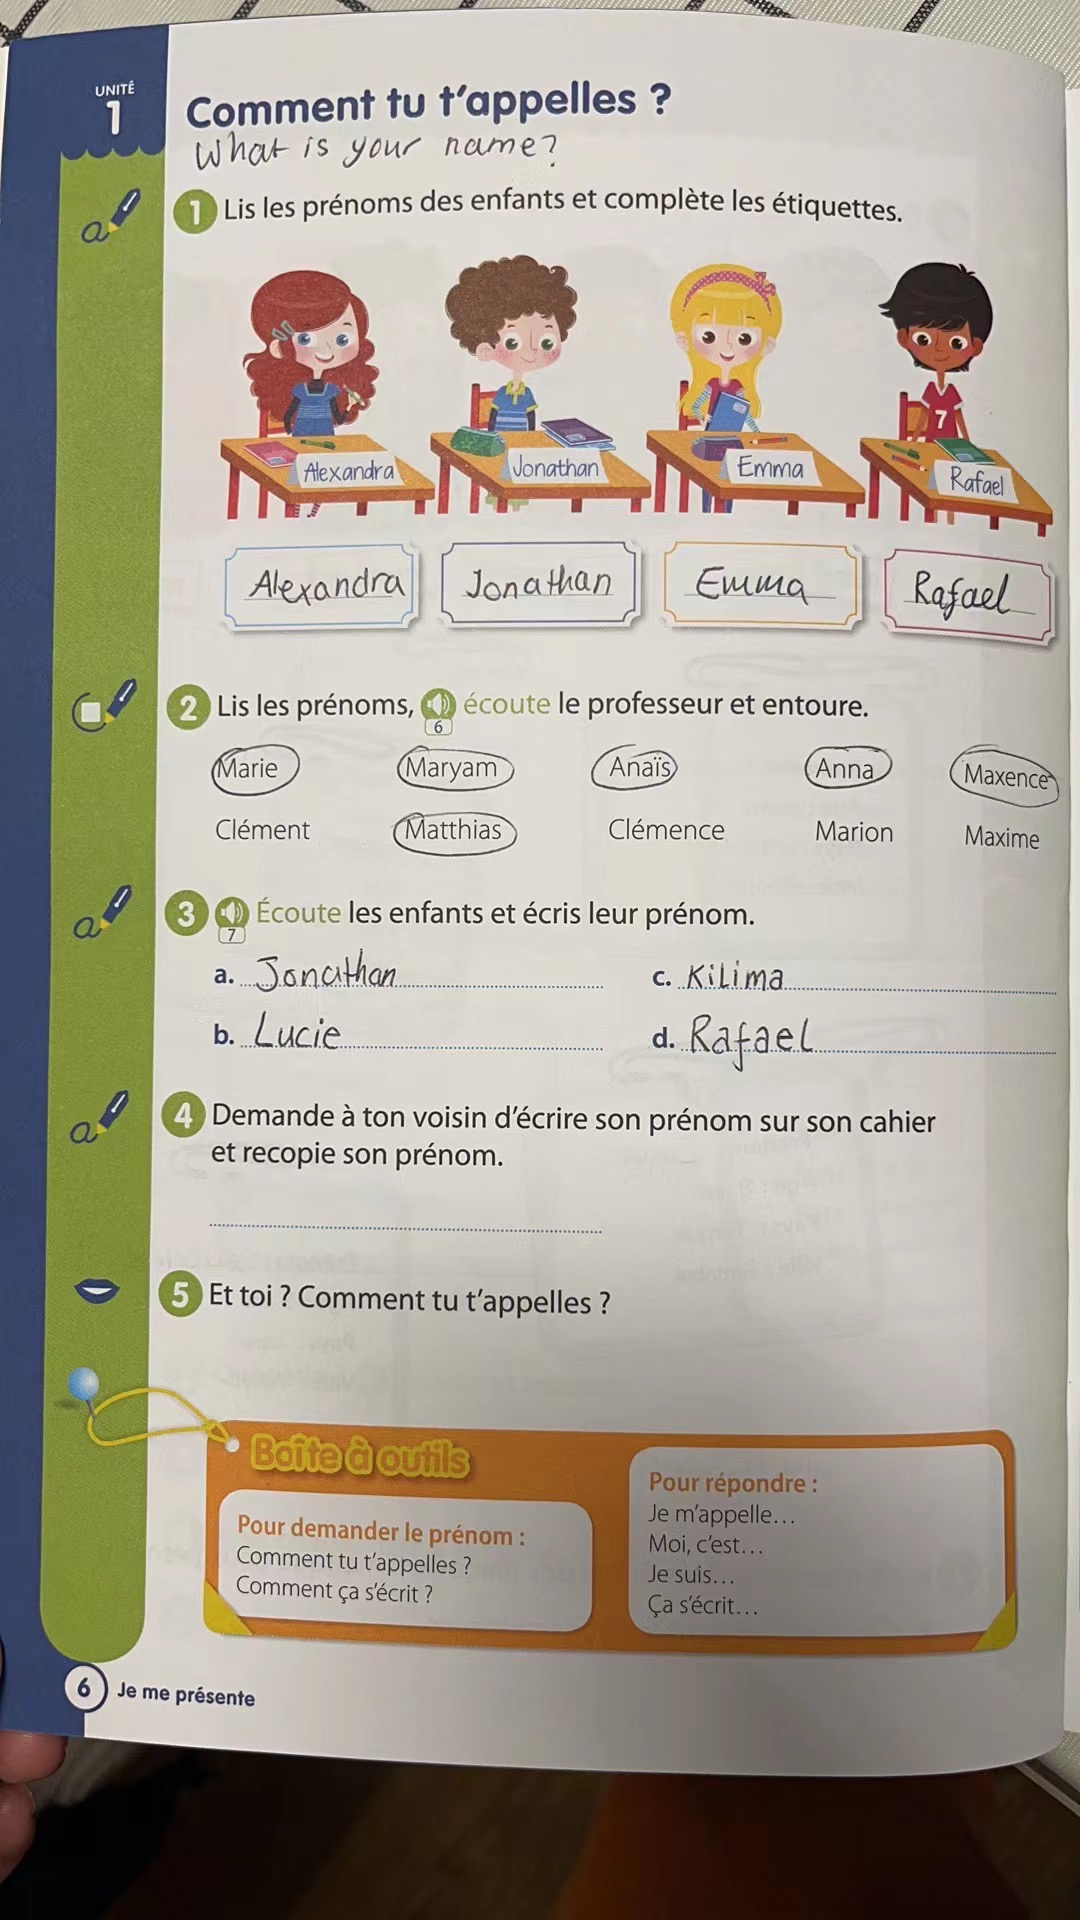 UNITÉ
1
Comment tu t'appelles ?
What is your name?
1 Lis les prénoms des enfants et complète les étiquettes.
Alexandra Jonathan Emma Rafael
7
Alexandra Jonathan Emma Rafael
2 Lis les prénoms, écoute le professeur et entoure.
6
Marie Maryam Anaïs Anna Maxence
Clément Matthias Clémence Marion Maxime
3 Écoute les enfants et écris leur prénom.
7
a. Jonathan c. Kilima
b. Lucie d. Rafael
4 Demande à ton voisin d'écrire son prénom sur son cahier
et recopie son prénom.
5 Et toi ? Comment tu t'appelles ?
Boîte à outils
Pour demander le prénom :
Comment tu t'appelles ?
Comment ça s'écrit ?
Pour répondre :
Je m'appelle...
Moi, c'est...
Je suis...
Ça s'écrit...
6 Je me présente